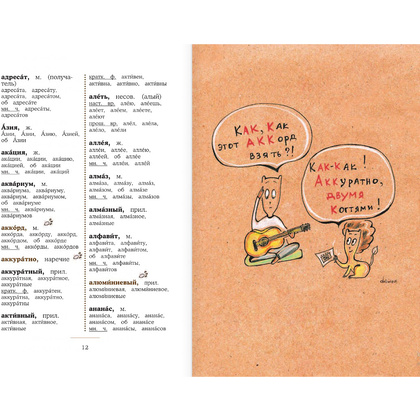 адреса́т, м. (получа-
тель)
адреса́та, адреса́ту,
адреса́та, адреса́том,
об адреса́те
мн. ч. адреса́ты,
адреса́тов
А́зия, ж.
А́зии, А́зии, А́зию, А́зией,
об А́зии
ака́ция, ж.
ака́ции, ака́ции, ака́цию,
ака́цией, об ака́ции
мн. ч. ака́ции, ака́ций
аква́риум, м.
аква́риума, аква́риуму,
аква́риум, аква́риумом,
об аква́риуме
мн. ч. аква́риумы,
аква́риумов
акко́рд, м.
акко́рда, акко́рду, акко́рд,
акко́рдом, об акко́рде
мн. ч. акко́рды, акко́рдов
аккура́тно, наречие
аккура́тный, прил.
аккура́тная, аккура́тное,
аккура́тные
кратк. ф. аккура́тен,
аккура́тна, аккура́тно,
аккура́тны
акти́вный, прил.
акти́вная, акти́вное,
акти́вные
кратк. ф. акти́вен,
акти́вна, акти́вно, акти́вны
але́ть, несов. (алый)
наст. вр. але́ю, але́ешь,
але́ет, але́ем, але́ете,
але́ют
прош. вр. але́л, але́ла,
але́ло, але́ли
алле́я, ж.
алле́и, алле́е, алле́ю,
алле́ей, об алле́е
мн. ч. алле́и, алле́й
алма́з, м.
алма́за, алма́зу, алма́з,
алма́зом, об алма́зе
мн. ч. алма́зы, алма́зов
алма́зный, прил.
алма́зная, алма́зное,
алма́зные
алфави́т, м.
алфави́та, алфави́ту,
алфави́т, алфави́том,
об алфави́те
мн. ч. алфави́ты,
алфави́тов
алюми́ниевый, прил.
алюми́ниевая, алюми́ниевое,
алюми́ниевые
анана́с, м.
анана́са, анана́су, анана́с,
анана́сом, об анана́се
мн. ч. анана́сы, анана́сов
12
Как, как
этот АККорд
взять?!
Как-как!
Аккуратно,
двумя
когтями!